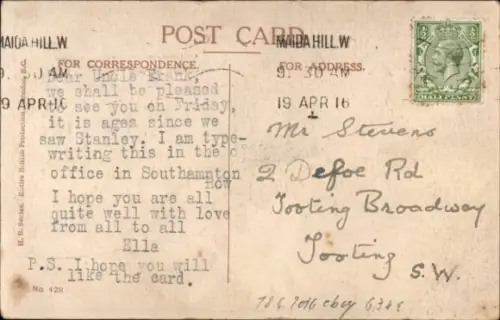 POST CARD
MAIDA HILL.W
MAIDA HILL.W
FOR CORRESPONDENCE.
FOR ADDRESS.
9. 30 AM
9. 30 AM
19 APR 16
19 APR 16
HALFPENNY
Dear Uncle Frank,
we shall be pleased
to see you on Friday,
it is ages since we
saw Stanley. I am type-
writing this in the
office in Southampton
Row
I hope you are all
quite well with love
from all to all
Ella
P.S. I hope you will
like the card.
No 428
Mr Stevens
2 Defoe Rd
Tooting Broadway
Tooting
S.W.